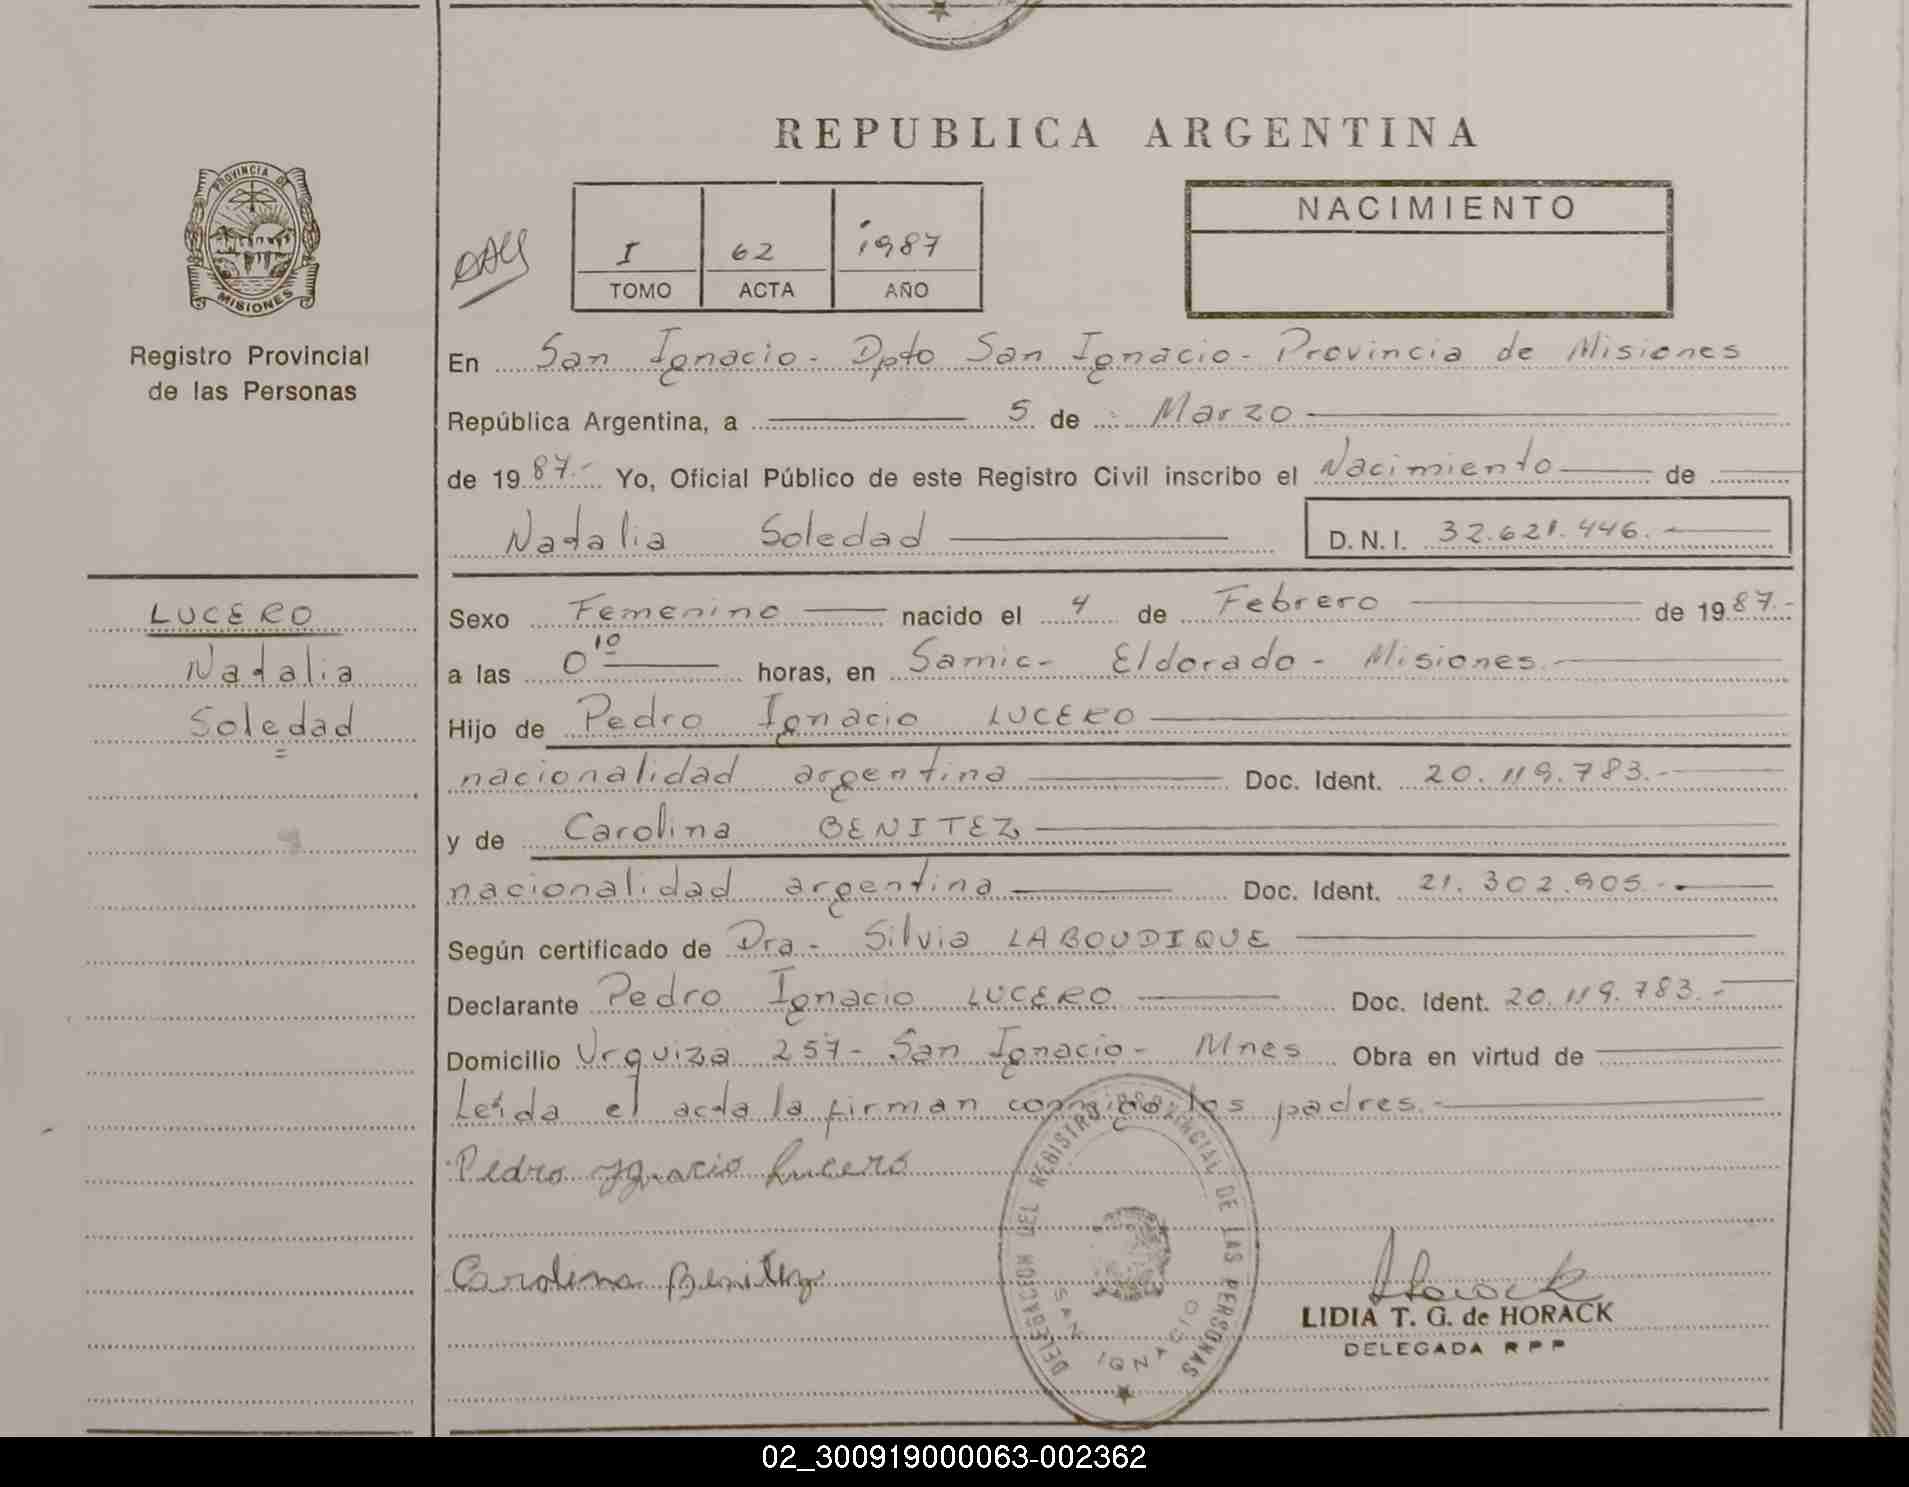 REPUBLICA ARGENTINA
PROVINCIA DE
MISIONES
Registro Provincial
de las Personas
I 62 1987
TOMO ACTA AÑO
NACIMIENTO
En San Ignacio - Dpto San Ignacio - Provincia de Misiones
República Argentina, a 5 de Marzo
de 1987.- Yo, Oficial Público de este Registro Civil inscribo el Nacimiento de
Natalia Soledad D.N.I. 32.621.446.-
LUCERO
Natalia
Soledad
Sexo Femenino nacido el 4 de Febrero de 1987.-
a las 0 10 horas, en Samic - Eldorado - Misiones.-
Hijo de Pedro Ignacio LUCERO
nacionalidad argentina Doc. Ident. 20.119.783.-
y de Carolina BENITEZ
nacionalidad argentina Doc. Ident. 21.302.905.-
Según certificado de Dra.- Silvia LABOUDIQUE
Declarante Pedro Ignacio LUCERO Doc. Ident. 20.119.783.-
Domicilio Urquiza 257 - San Ignacio - Mnes Obra en virtud de
Leída el acta la firman conmigo los padres.-
Pedro Ignacio Lucero
Carolina Benitez
DELEGACION DEL REGISTRO PROVINCIAL DE LAS PERSONAS
SAN IGNACIO
Horack
LIDIA T. G. de HORACK
DELEGADA RPP
02_300919000063-002362